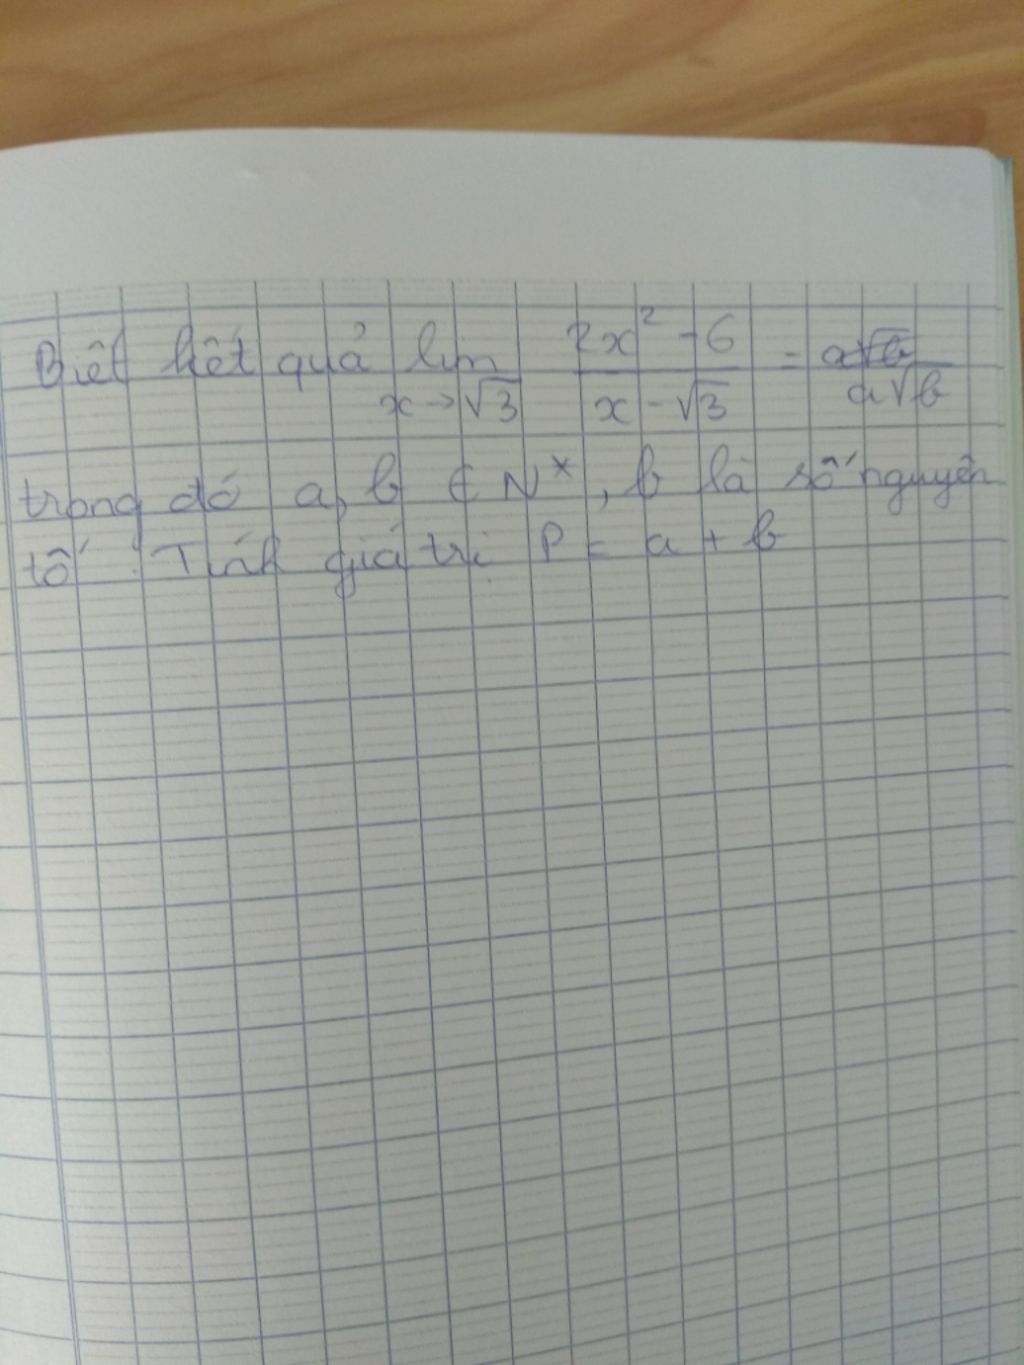 Biết kết quả lim 2x² - 6 = a√b
x→√3 x - √3 a√b
trong đó a, b ∈ N*, b là số nguyên
tố. Tính giá trị P = a + b